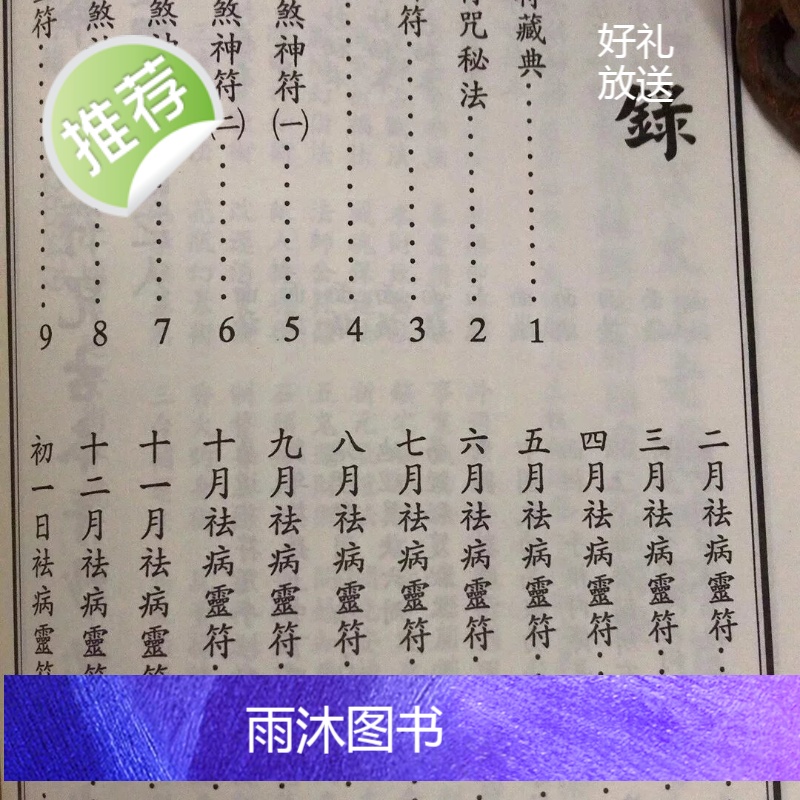 好礼
放送
錄
符藏典 1
符咒秘法 2
符 3
4
煞神符(一) 5
煞神符(二) 6
煞神 7
煞 8
符 9
二月祛病靈符
三月祛病靈符
四月祛病靈符
五月祛病靈符
六月祛病靈符
七月祛病靈符
八月祛病靈符
九月祛病靈符
十月祛病靈符
十一月祛病靈符
十二月祛病靈符
初一日祛病靈符
推荐
雨沐图书